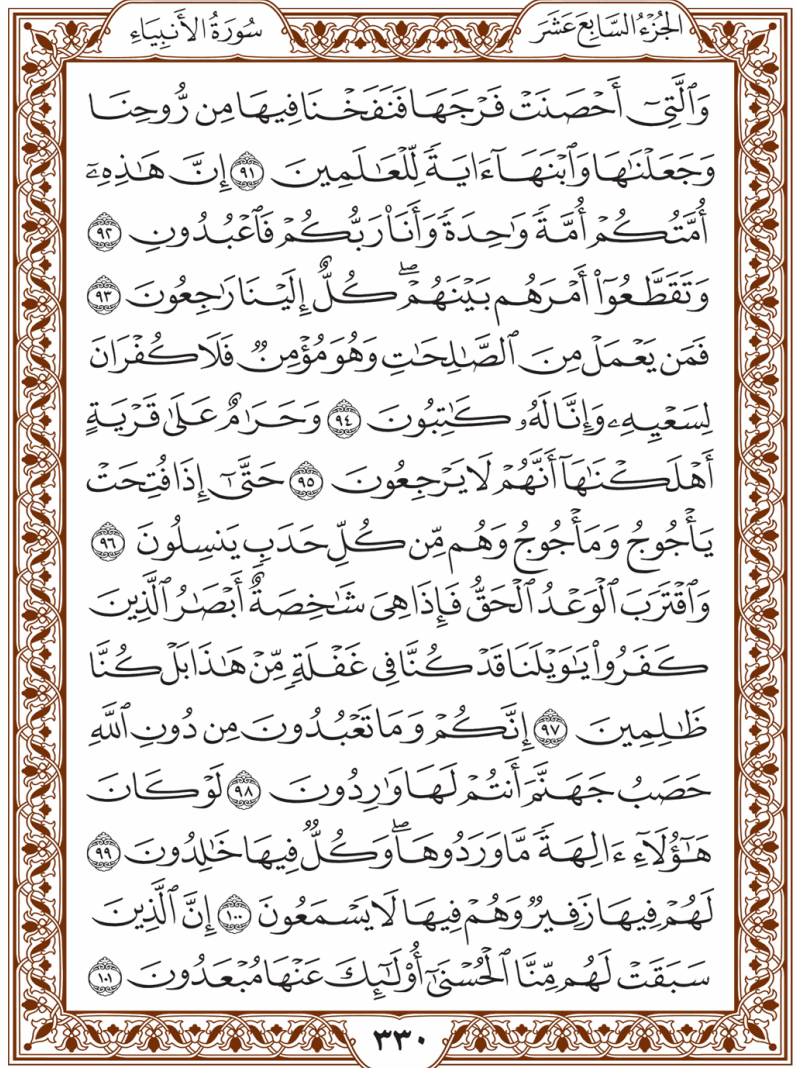 الجُزْءُ السَّابِعَ عَشَرَ
سُورَةُ الأَنبِيَاءِ
وَٱلَّتِىٓ أَحْصَنَتْ فَرْجَهَا فَنَفَخْنَا فِيهَا مِن رُّوحِنَا
وَجَعَلْنَٰهَا وَٱبْنَهَآ ءَايَةً لِّلْعَٰلَمِينَ ٩١ إِنَّ هَٰذِهِۦٓ
أُمَّتُكُمْ أُمَّةً وَٰحِدَةً وَأَنَا۠ رَبُّكُمْ فَٱعْبُدُونِ ٩٢
وَتَقَطَّعُوٓا۟ أَمْرَهُم بَيْنَهُمْ ۖ كُلٌّ إِلَيْنَا رَٰجِعُونَ ٩٣
فَمَن يَعْمَلْ مِنَ ٱلصَّٰلِحَٰتِ وَهُوَ مُؤْمِنٌ فَلَا كُفْرَانَ
لِسَعْيِهِۦ وَإِنَّا لَهُۥ كَٰتِبُونَ ٩٤ وَحَرَٰمٌ عَلَىٰ قَرْيَةٍ
أَهْلَكْنَٰهَآ أَنَّهُمْ لَا يَرْجِعُونَ ٩٥ حَتَّىٰٓ إِذَا فُتِحَتْ
يَأْجُوجُ وَمَأْجُوجُ وَهُم مِّن كُلِّ حَدَبٍ يَنسِلُونَ ٩٦
وَٱقْتَرَبَ ٱلْوَعْدُ ٱلْحَقُّ فَإِذَا هِىَ شَٰخِصَةٌ أَبْصَٰرُ ٱلَّذِينَ
كَفَرُوا۟ يَٰوَيْلَنَا قَدْ كُنَّا فِى غَفْلَةٍ مِّنْ هَٰذَا بَلْ كُنَّا
ظَٰلِمِينَ ٩٧ إِنَّكُمْ وَمَا تَعْبُدُونَ مِن دُونِ ٱللَّهِ
حَصَبُ جَهَنَّمَ أَنتُمْ لَهَا وَٰرِدُونَ ٩٨ لَوْ كَانَ
هَٰٓؤُلَآءِ ءَالِهَةً مَّا وَرَدُوهَا ۖ وَكُلٌّ فِيهَا خَٰلِدُونَ ٩٩
لَهُمْ فِيهَا زَفِيرٌ وَهُمْ فِيهَا لَا يَسْمَعُونَ ١٠٠ إِنَّ ٱلَّذِينَ
سَبَقَتْ لَهُم مِّنَّا ٱلْحُسْنَىٰٓ أُو۟لَٰٓئِكَ عَنْهَا مُبْعَدُونَ ١٠١
٣٣٠